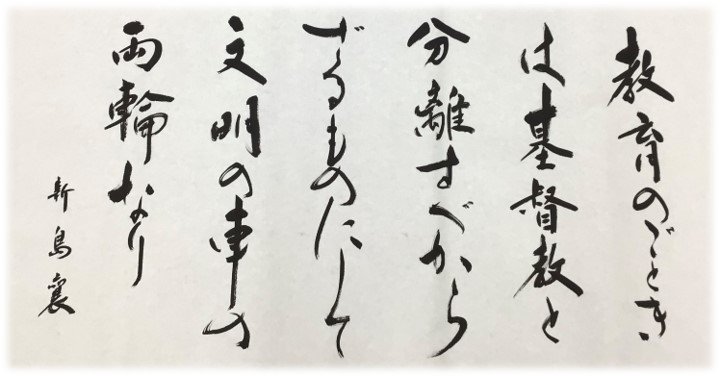 教育のごとき
は基督教と
分離すべから
ざるものにして
文明の車の
両輪なり
新島襄